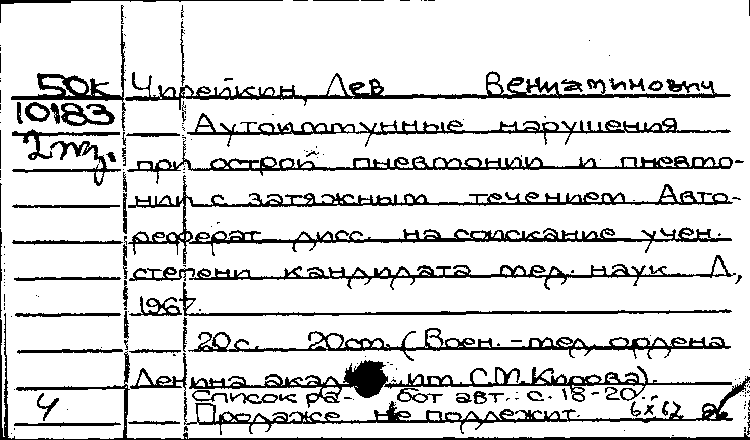 50К Чирейкин, Лев Вениаминович
10183 Аутоиммунные нарушения
2 экз. при острой пневмонии и пневмо-
нии с затяжным течением Авто-
реферат дисс. на соискание учен.
степени кандидата мед. наук Л,
1967.
20с. 20см. (Воен.-мед. ордена
Ленина акад им. С.М. Кирова).
Список ра- бот авт.: с. 18-20.
Ч Продаже не подлежит.